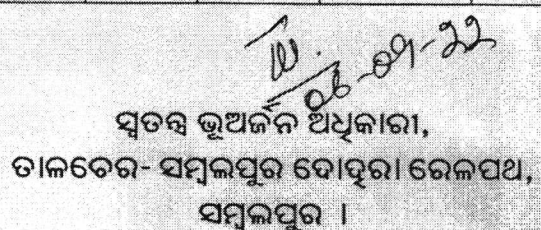 06-09-22
ସ୍ୱତନ୍ତ୍ର ଭୂଅର୍ଜନ ଅଧିକାରୀ,
ତାଳଚେର- ସମ୍ବଲପୁର ଦୋହରା ରେଳପଥ,
ସମ୍ବଲପୁର ।